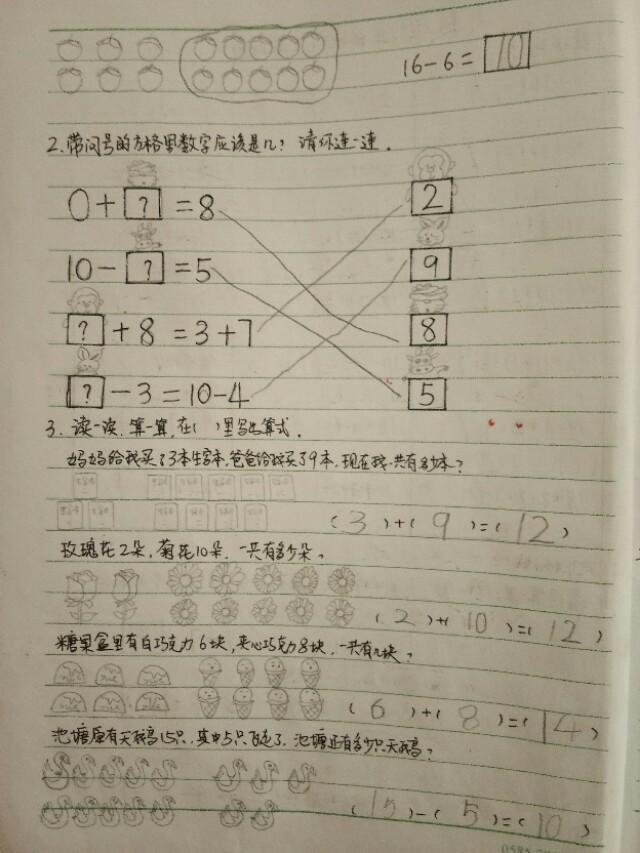 16-6=10
2、带问号的方格里数字应该是几?请你连一连.
0+?=8
2
10-?=5
9
?+8=3+7
8
?-3=10-4
5
3、读一读,算一算,在( )里写出算式.
妈妈给我买了3本生字本,爸爸给我买了9本,现在我一共有多少本?
(3)+(9)=(12)
玫瑰花2朵,菊花10朵,一共有多少朵?
(2)+(10)=(12)
糖果盒里有白巧克力6块,夹心巧克力8块,一共有几块?
(6)+(8)=(14)
池塘原有天鹅15只,其中5只飞走了,池塘还有多少只天鹅?
(15)-(5)=(10)